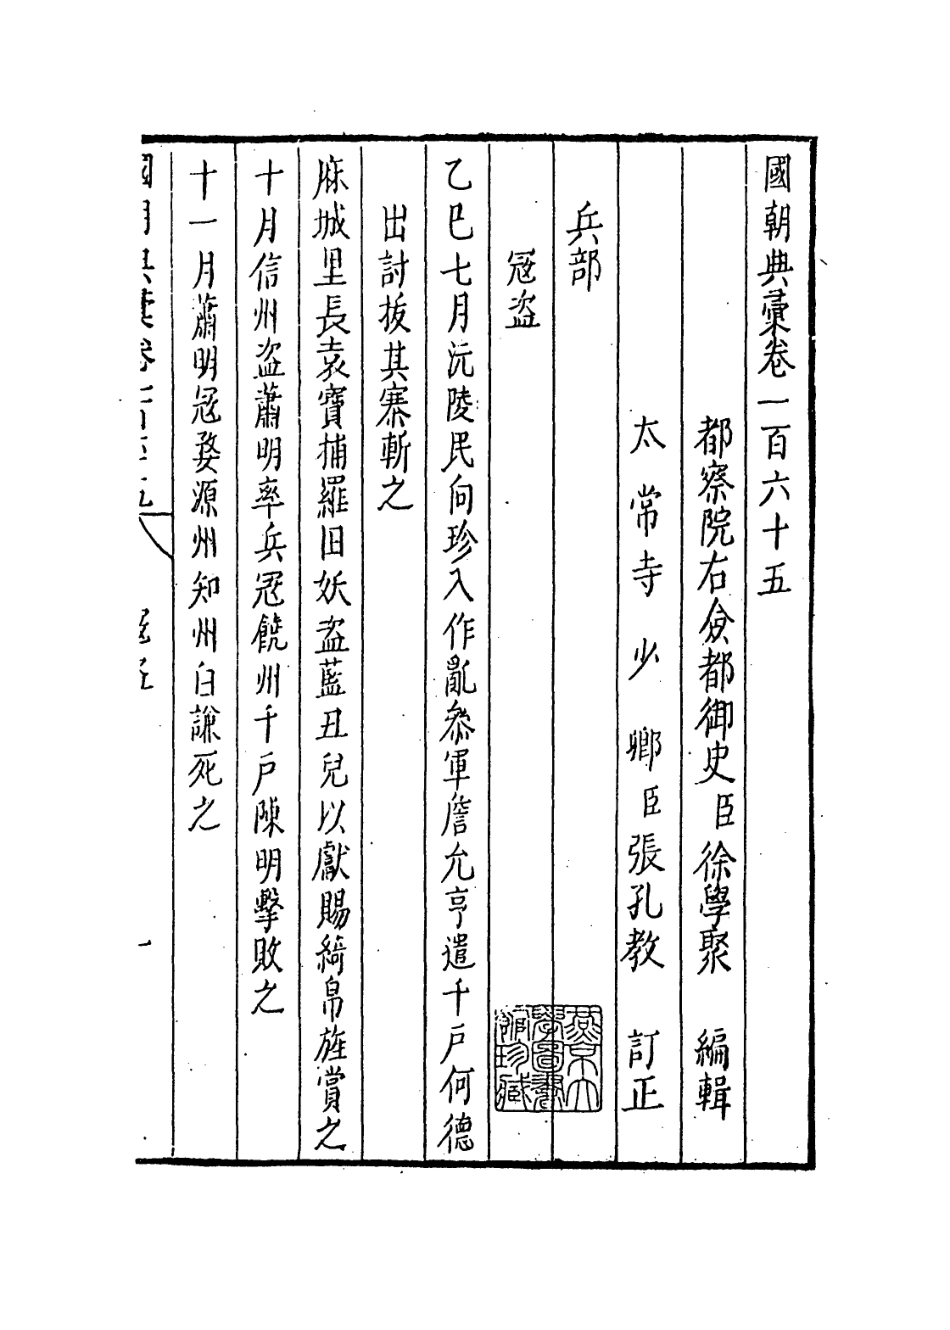 國朝典彙卷一百六十五
都察院右僉都御史臣徐學聚 編輯
太常寺少卿臣張孔教 訂正
兵部
寇盗
乙巳七月沅陵民向珍入作亂叅軍詹允亨遣千戶何德
出討拔其寨斬之
麻城里長袁寶捕羅田妖盗藍丑兒以獻賜綺帛旌賞之
十月信州盗蕭明率兵寇饒州千戶陳明擊敗之
十一月蕭明寇婺源州知州白謙死之
國朝典彙卷
一
燕京大學圖書館珍藏